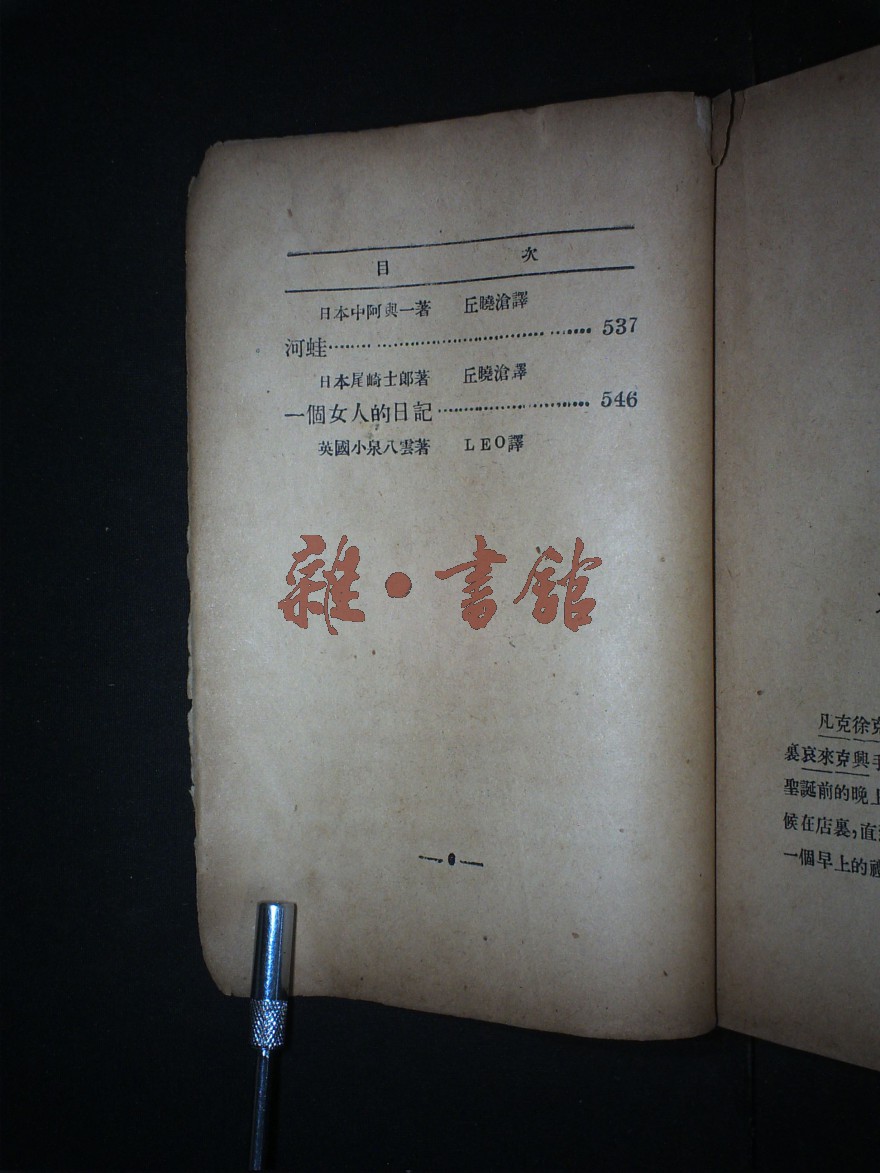 目 次
日本中阿與一著 丘曉滄譯
河蛙 537
日本尾崎士郎著 丘曉滄譯
一個女人的日記 546
英國小泉八雲著 LEO譯
雜·書館
凡克徐克
裏哀來克興手
聖誕前的晚上
候在店裏,直
一個早上的禮